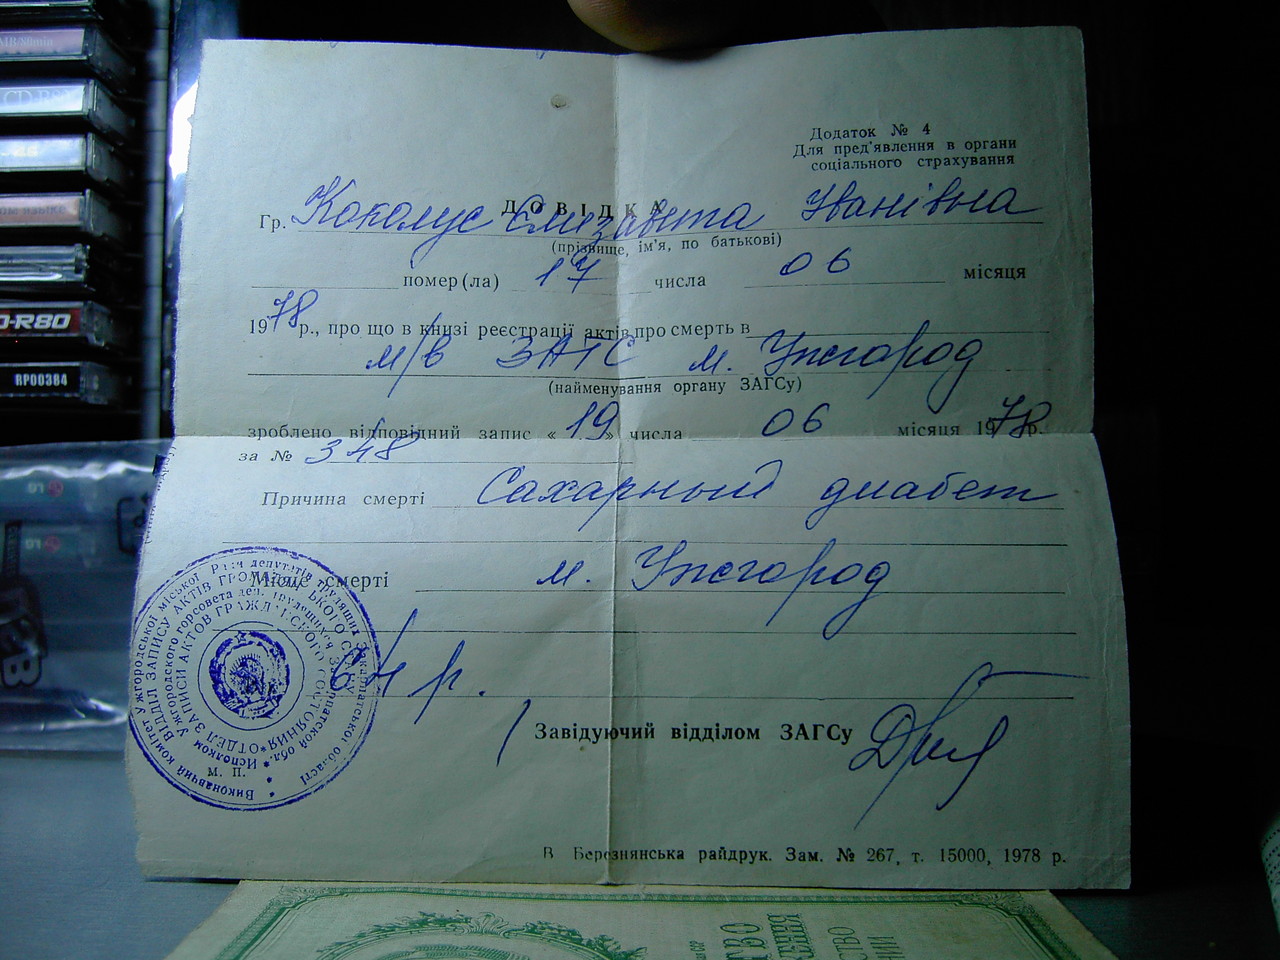 MB/80min
CD-R80
-R80
RP00384
Додаток № 4
Для пред'явлення в органи
соціального страхування
ДОВІДКА
Гр. Коколус Єлизавета Іванівна
(прізвище, ім'я, по батькові)
помер(ла) 17 числа 06 місяця
1978 р., про що в книзі реєстрації актів про смерть в
м/в ЗАГС м. Ужгород
(найменування органу ЗАГСу)
зроблено відповідний запис «19» числа 06 місяця 1978 р.
за № 348
Причина смерті Сахарный диабет
Місце смерті м. Ужгород
64 р.
Завідуючий відділом ЗАГСу
Виконавчий комітет Ужгородської міської Ради депутатів трудящих Закарпатської області
ВІДДІЛ ЗАПИСУ АКТІВ ГРОМАДЯНСЬКОГО СТАНУ
Исполком Ужгородского горсовета деп. трудящихся Закарпатской обл.
ОТДЕЛ ЗАПИСИ АКТОВ ГРАЖДАНСКОГО СОСТОЯНИЯ
М. П.
В Березнянська райдрук. Зам. № 267, т. 15000, 1978 р.